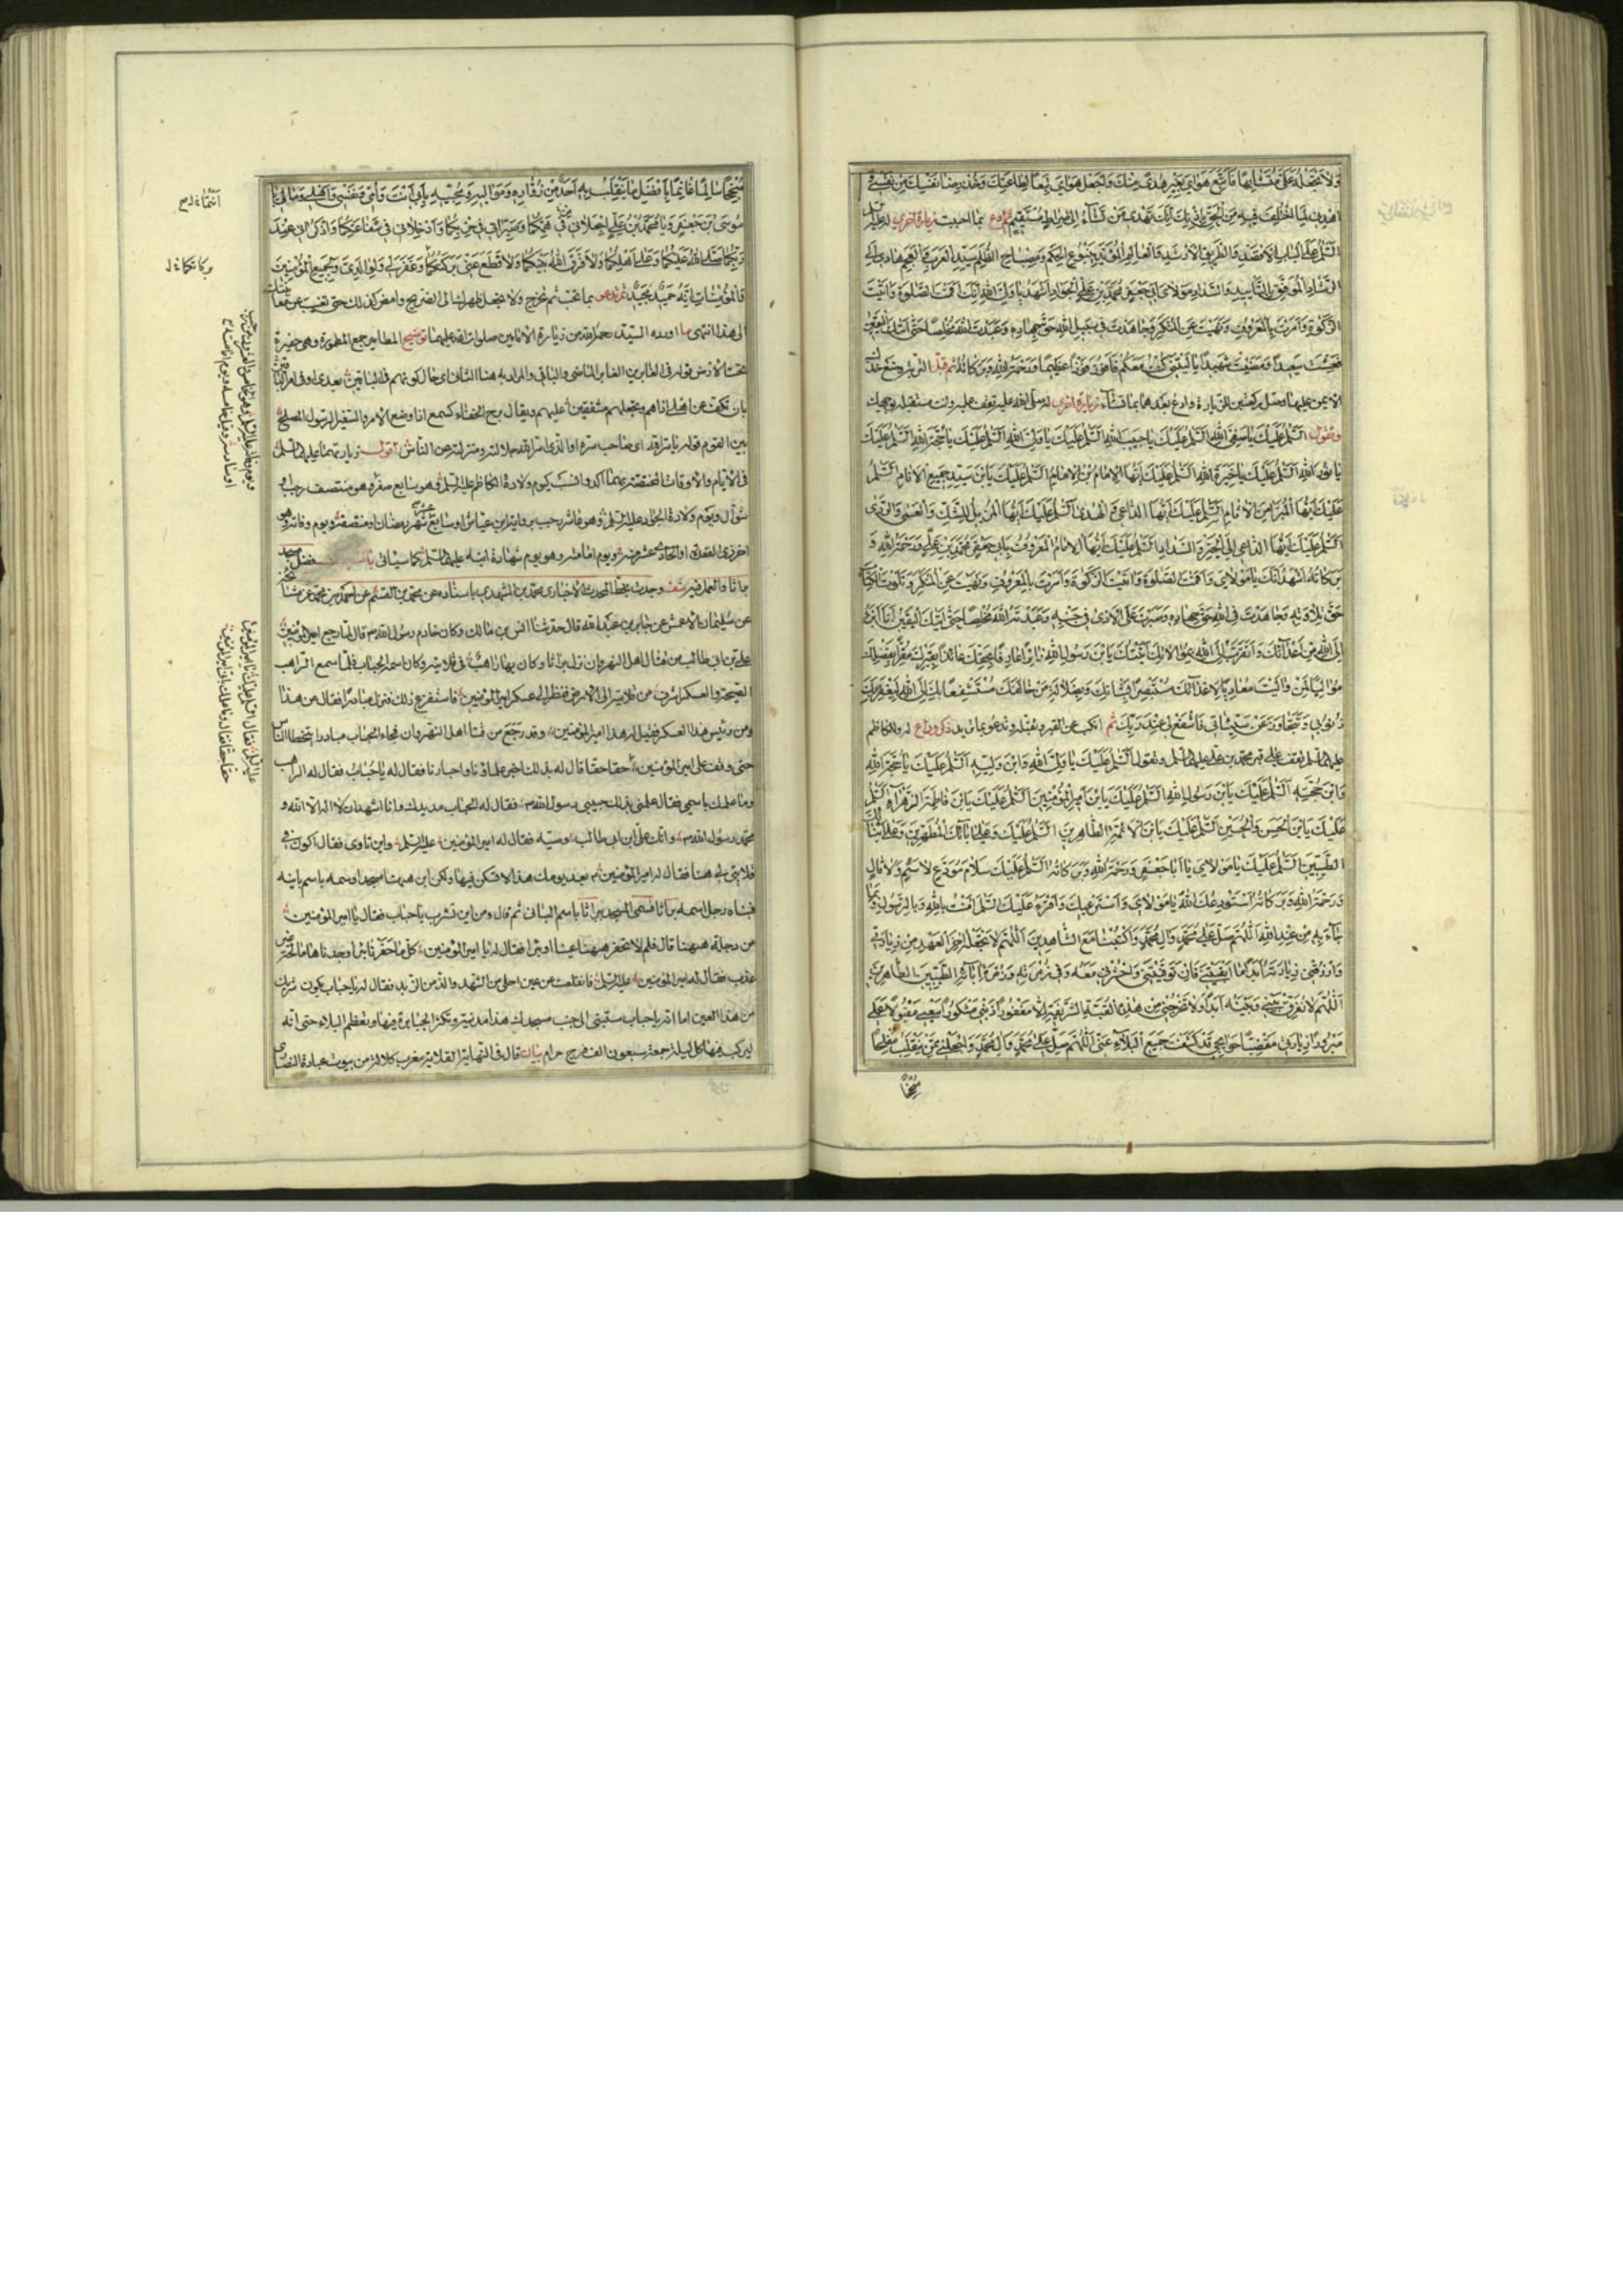 ولا تجعله علي متشابها فاتبع هواي بغير هدى منك واجعل هواي تبعا لطاعتك وخذ رضا نفسك من نفسي و
اهدني لما اختلف فيه من الحق باذنك انك تهدي من تشاء الى صراط مستقيم ثم ادع بما احببت زيارة اخرى له عليه السلم
السلم على الباب الاقصد والطريق الارشد والعالم المؤيد ينبوع الحكم ومصباح الظلم سيد العرب والعجم الهادي الى
الرشاد الموفق بالتأييد والسداد مولاي ابي جعفر محمد بن علي الجواد اشهد يا ولي الله انك اقمت الصلوة واتيت
الزكوة وامرت بالمعروف ونهيت عن المنكر وجاهدت في سبيل الله حق جهاده وعبدت الله مخلصا حتى اتيك اليقين
فعشت سعيدا ومضيت شهيدا يا ليتني كنت معكم فافوز فوزا عظيما ورحمة الله وبركاته ثم قبل التربة وضع خدك
الايمن عليها وصل ركعتين للزيارة وادع بعدهما بما تشاء زيارة اخرى له صلى الله عليه تقف عليه وانت مستقبله بوجهك
وتقول السلم عليك يا صفي الله السلم عليك يا حبيب الله السلم عليك يا ولي الله السلم عليك يا حجة الله السلم عليك
يا نور الله السلم عليك يا خيرة الله السلم عليك ايها الامام بن الامام السلم عليك يابن سيد جميع الانام السلم
عليك ايها المبرأ من الاثام السلم عليك ايها الداعي الى الهدى السلم عليك ايها المزيل للشك والعمى والردى
السلم عليك ايها الداعي الى الخير والسداد السلم عليك ايها الامام المعروف بابي جعفر محمد بن علي ورحمة الله و
بركاته اشهد انك يا مولاي واقمت الصلوة واتيت الزكوة وامرت بالمعروف ونهيت عن المنكر وتلوت الكتاب
حق تلاوته وجاهدت في الله حق جهاده وصبرت على الاذى في جنبه وعبدته الله مخلصا حتى اتيك اليقين انا ابرء
الى الله من اعدائك واتقرب الى الله بموالاتك اتيتك يابن رسول الله زائرا عارفا بحقك عائذا بقبرك مقرا بفضلك
مواليا لمن واليت معاديا لاعدائك مستبصرا بشانك وبضلالة من خالفك مستشفعا بك الى الله ليغفر بك
ذنوبي ويتجاوز عن سيئاتي فاشفع لي عند ربك ثم انكب على القبر وقبله وتدعو بما تريد ذكر وداع له وللكاظم
عليهما السلم تقف على قبر محمد بن علي عليهما السلم وتقول السلم عليك يا ولي الله وابن وليه السلم عليك يا حجة الله
وابن حجته السلم عليك يابن رسول الله السلم عليك يابن امير المؤمنين السلم عليك يابن فاطمة الزهراء السلم
عليك يابن الحسن والحسين السلم عليك يابن الائمة الطاهرين السلم عليك وعلى ابائك المطهرين وعلى ابنائك
الطيبين السلم عليك يا مولاي يا ابا جعفر ورحمة الله وبركاته السلم عليك سلام مودع لا سئم ولا قال
ورحمة الله وبركاته استودعك الله يا مولاي واسترعيك واقرء عليك السلم امنت بالله وبالرسول وبما
جاء به من عند الله اللهم صل على محمد وال محمد واكتبنا مع الشاهدين اللهم لا تجعله اخر العهد من زيارتي
وارزقني زيارته ابدا ما ابقيتني فان توفيتني واحشرني معه وفي زمرته وزمرة ابائه الطيبين الطاهرين
اللهم لا تفرق بيني وبينه ابدا ولا تخرجني من هذه القبة الشريفة الا مغفورا ذنبي مشكورا سعيي مقبولا عملي
مبرورا زيارتي مقضيا حوائجي قد كشفت جميع البلاء عني اللهم صل على محمد وال محمد واجعلني ممن ينقلب مفلحا
منجحا
منجحا سالما غانما بافضل ما ينقلب به احد من زواره ومواليه ومحبيه بابي انت وامي ونفسي واهلي ومالي يا
موسى بن جعفر ويا محمد بن علي اجعلاني في همكما وصيراني في حزبكما وادخلاني في شفاعتكما واذكراني عند
ربكما صلى الله عليكما وعلى اهلكما ولا فرق الله بينكما ولا قطع عني بركتكما وغفر لي ولوالدي وجميع المؤمنين
والمؤمنات انه حميد مجيد ثم تدعو بما تحب ثم تخرج ولا تجعل ظهرك الى الضريح وامض كذلك حتى تغيب عن معاينتك
الى هذا انتهى ما اورده السيد رحمه الله من زيارة الامامين صلوات الله عليهما توضيح المطامير جمع المطمورة وهي حفيرة
تحت الارض قوله في الغابرين الغابر الماضي والباقي والمراد به هنا الثاني اي حال كونهم في الباقين بعدي او في امر الباقين
بان تكف عن اهلي اذاهم وتجعلهم مشفقين عليهم ويقال برح الخفاء كسمع اذا وضح الامر والسفير الرسول المصلح
بين القوم قوله يا سر الله اي صاحب سره او الذي استر الله جلالته ومنزلته عن الناس اقول زيارتهما عليهما السلم
في الايام والاوقات المختصة بهما آكد وانسب كيوم ولادة الكاظم عليه السلم وهو سابع صفر وهو منتصف رجب او
شوال ويوم ولادة الجواد عليه السلم وهو عاشر رجب برواية ابن عياش او سابع عشر شهر رمضان او منتصفه ويوم وفاته وهو
اخر ذي القعدة او الحادي عشر منه ويوم امامته وهو يوم شهادة ابيه عليهما السلم كما سيأتي باب فضل مسجد
براثا والعمل فيه شف وجدت بخط المحدث الاخباري محمد بن المشهدي باسناده عن محمد بن القسم عن احمد بن محمد عن مشايخه
عن سليمان الاعمش عن جابر بن عبد الله قال حدثنا انس بن مالك وكان خادم رسول الله ص قال لما رجع امير المؤمنين
علي بن ابي طالب من قتال اهل النهروان نزل براثا وكان بها راهب في قلايته وكان اسمه الحباب فلما سمع الراهب
الصيحة والعسكر اشرف من قلايته الى الارض فنظر الى عسكر امير المؤمنين فاستفزع ذلك فنزل مبادرا فقال من هذا
ومن رئيس هذا العسكر فقيل له هذا امير المؤمنين وقد رجع من قتال اهل النهروان فجاء الحباب مبادرا يتخطا الناس
حتى وقف على امير المؤمنين حقا حقا قال له بذلك اخبر علماؤنا واحبارنا فقال له يا حباب فقال له الراهب
وما علمك باسمي فقال علمني بذلك حبيبي رسول الله ص فقال له الحباب مد يدك وانا اشهد ان لا اله الا الله و
محمد رسول الله ص وانك علي ابن ابي طالب وصيه فقال له امير المؤمنين عليه السلم واين تاوى فقال اكون في
قلايتي لي ههنا فقال له امير المؤمنين بعد يومك هذا لا تسكن فيها ولكن ابن ههنا مسجدا وسمه باسم بانيه
فبناه رجل اسمه براثا فسمى المسجد ببراثا باسم الباني ثم قال ومن اين تشرب يا حباب فقال يا امير المؤمنين
من دجلة ههنا قال فلم لا تحفر ههنا عينا او بئرا فقال له يا امير المؤمنين كلما حفرنا بئرا وجدناها مالحة غير
عذبة فقال له امير المؤمنين عليه السلم فانقلعت عن عين احلى من الشهد والذ من الزبد فقال له يا حباب يكون شربك
من هذا العين اما انه يا حباب ستبنى الى جنب مسجدك هذا مدينة وتكثر الجبابرة فيها وتعظم البلاء حتى انه
ليركب فيها كل ليلة جمعة سبعون الف فرج حرام بيان قال في النهاية القلاية معرب كلاذة من بيوت عبادة النصارى